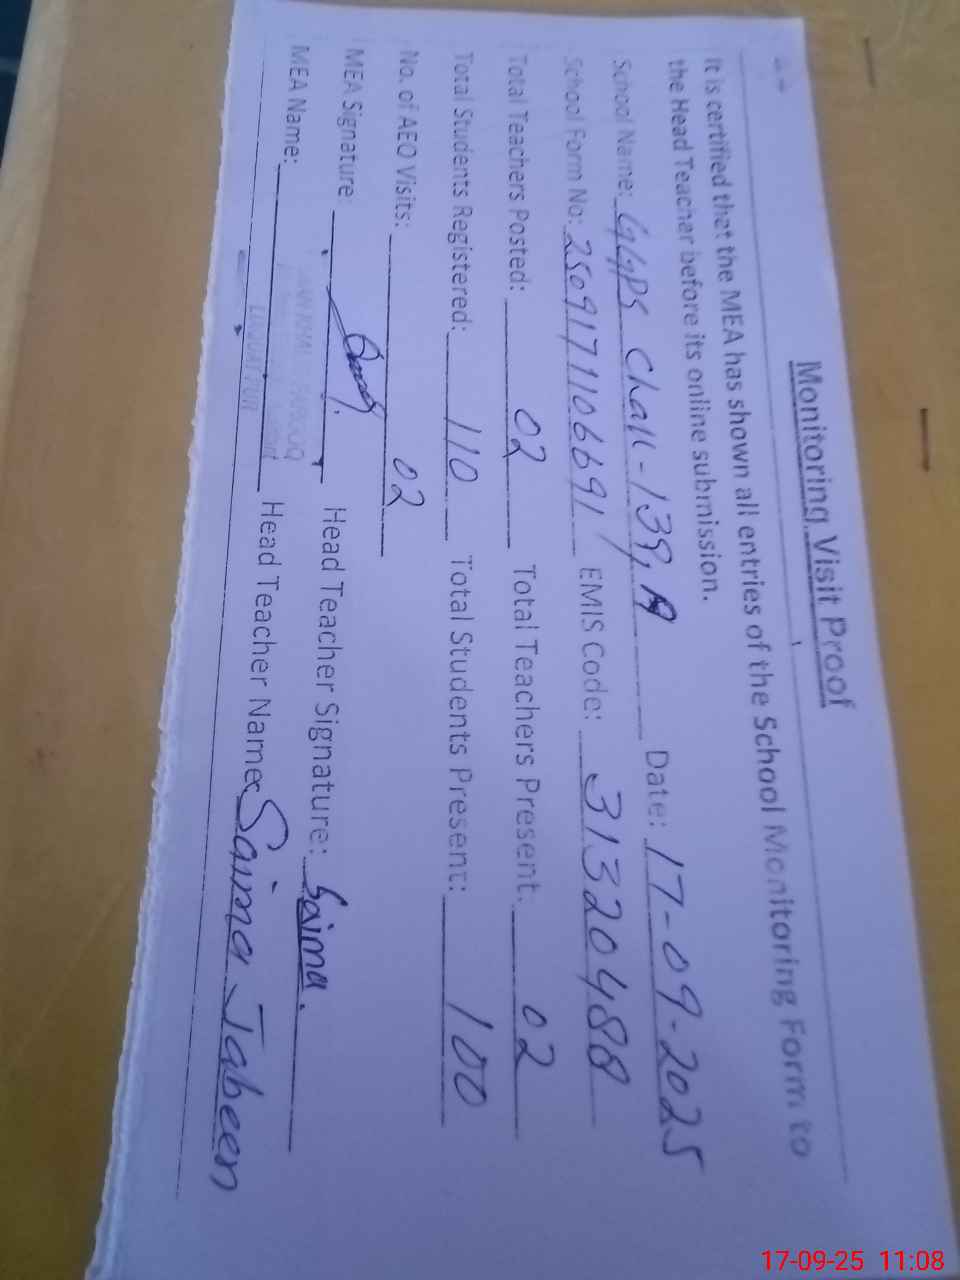 Monitoring Visit Proof
It is certified that the MEA has shown all entries of the School Monitoring Form to
the Head Teacher before its online submission.
School Name: GGPS Chak-139, A Date: 17-09-2025
School Form No: 2509171106691 EMIS Code: 31320488
Total Teachers Posted: 02 Total Teachers Present: 02
Total Students Registered: 110 Total Students Present: 100
No. of AEO Visits: 02
MEA Signature: Head Teacher Signature: Saima.
MEA Name: Head Teacher Name: Saima Jabeen
17-09-25 11:08